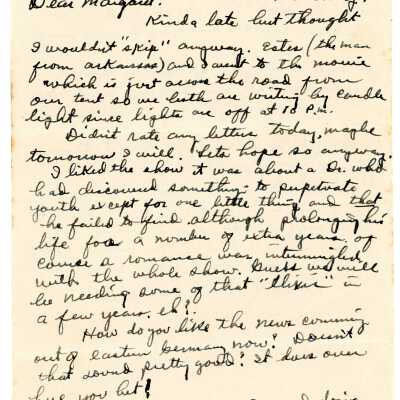 Dear Margaret.
Kinda late but thought
I wouldn't "skip" anyway. Estes (the man
from arkansas) and I went to the movie
which is just across the road from
our tent so we both are writing by candle
light since lights are off at 10 P.M.
Didn't rate any letters today, maybe
tomorrow I will. Lets hope so anyway.
I liked the show it was about a Dr. who
had discovered something to perpetrate
youth except for one little thing and that
he failed to find although prolonging his
life for a number of extra years. of
course a romance was intermingled
with the whole show. Guess we will
be needing some of that "Elixir" in
a few years. eh?
How do you like the news coming
out of eastern Germany now? Doesn't
that sound pretty good? It does over
here you bet!